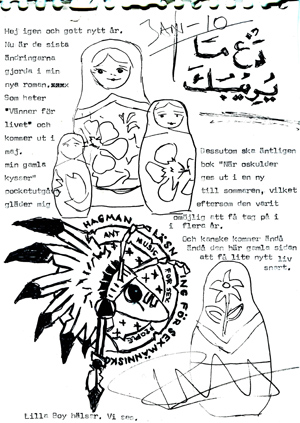 JAN-10
دع ما
يريبك
Hej igen och gott nytt år.
Nu är de sista
ändringarna
gjorda i min
nya roman. xxxx
Som heter
"Vänner för
livet" och
kommer ut i
maj. Dessutom ska äntligen
min gamla bok "När oskulder
kysser" ges ut i en ny
pocketutgå till sommaren, vilket
gläder mig eftersom den varit
omöjlig att få tag på i
flera år.
Och kanske kommer ändå
ändå den här gamla sidan
att få lite nytt liv
snart.
HAGMAN
ANT
MUSI
FOR SEX
PEOPLE
Boy hälsar. Vi ses.